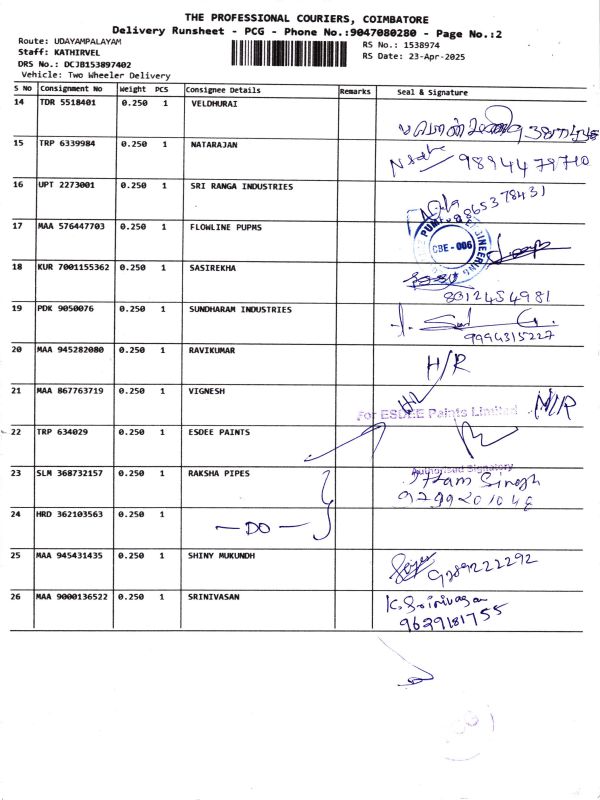 THE PROFESSIONAL COURIERS, COIMBATORE
Delivery Runsheet - PCG - Phone No.:9047080280 - Page No.:2
Route: UDAYAMPALAYAM
Staff: KATHIRVEL
DRS No.: DCJB153897402
Vehicle: Two Wheeler Delivery
RS No.: 1538974
RS Date: 23-Apr-2025
S No Consignment No Weight PCS Consignee Details Remarks Seal & Signature
14 TDR 5518401 0.250 1 VELDHURAI
15 TRP 6339984 0.250 1 NATARAJAN 9894479710
16 UPT 2273001 0.250 1 SRI RANGA INDUSTRIES 8865378431
17 MAA 576447703 0.250 1 FLOWLINE PUPMS
CBE - 006
18 KUR 7001155362 0.250 1 SASIREKHA 8012454981
19 PDK 9050076 0.250 1 SUNDHARAM INDUSTRIES 9994315227
20 MAA 945282080 0.250 1 RAVIKUMAR H/R
21 MAA 867763719 0.250 1 VIGNESH N/R
For ESDEE Paints Limited
22 TRP 634029 0.250 1 ESDEE PAINTS
Authorised Signatory
23 SLM 368732157 0.250 1 RAKSHA PIPES Singh
24 HRD 362103563 0.250 1 — DO —
25 MAA 945431435 0.250 1 SHINY MUKUNDH 9789222292
26 MAA 9000136522 0.250 1 SRINIVASAN K. Srinivasan
9629181755